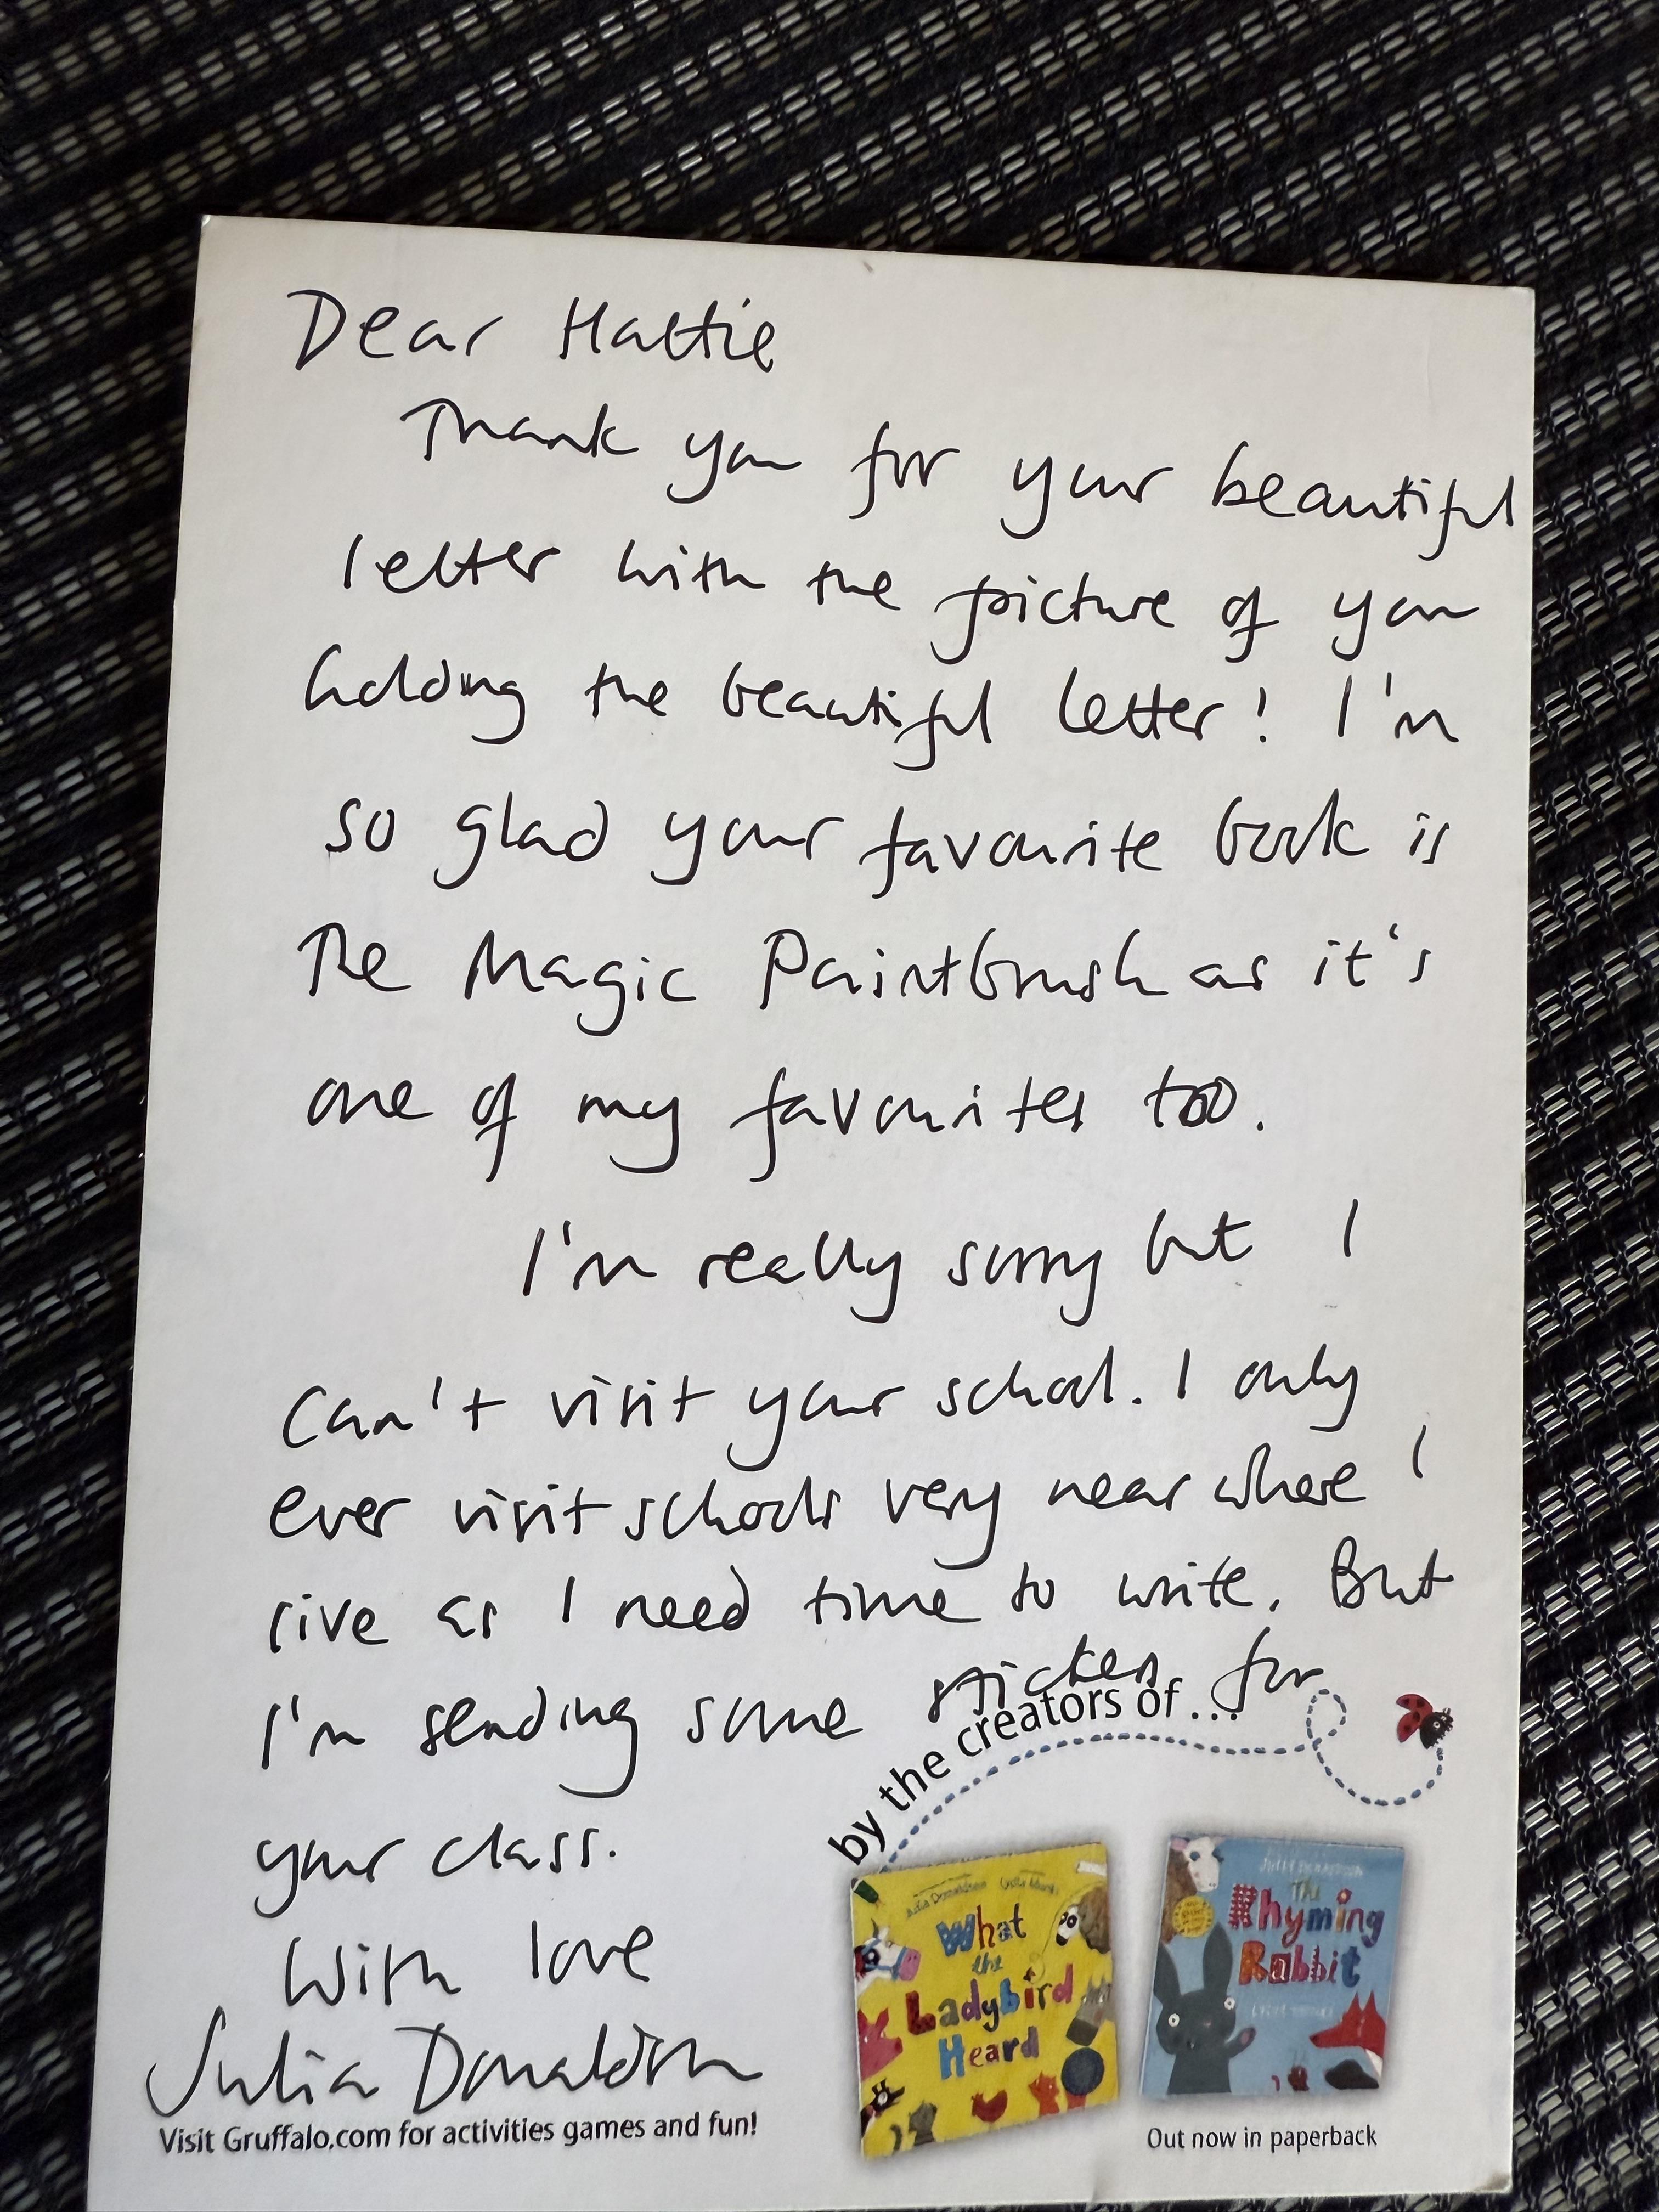 Dear Hattie
Thank you for your beautiful
letter with the picture of you
holding the beautiful letter! I'm
so glad your favourite book is
The Magic Paintbrush as it's
one of my favourites too.
I'm really sorry but I
can't visit your school. I only
ever visit schools very near where I
live as I need time to write. But
I'm sending some stickers for
your class.
With love
Julia Donaldson
Visit Gruffalo.com for activities games and fun!
by the creators of...
Julia Donaldson
What
the
Ladybird
Heard
JULIA DONALDSON
The
Rhyming
Rabbit
Out now in paperback